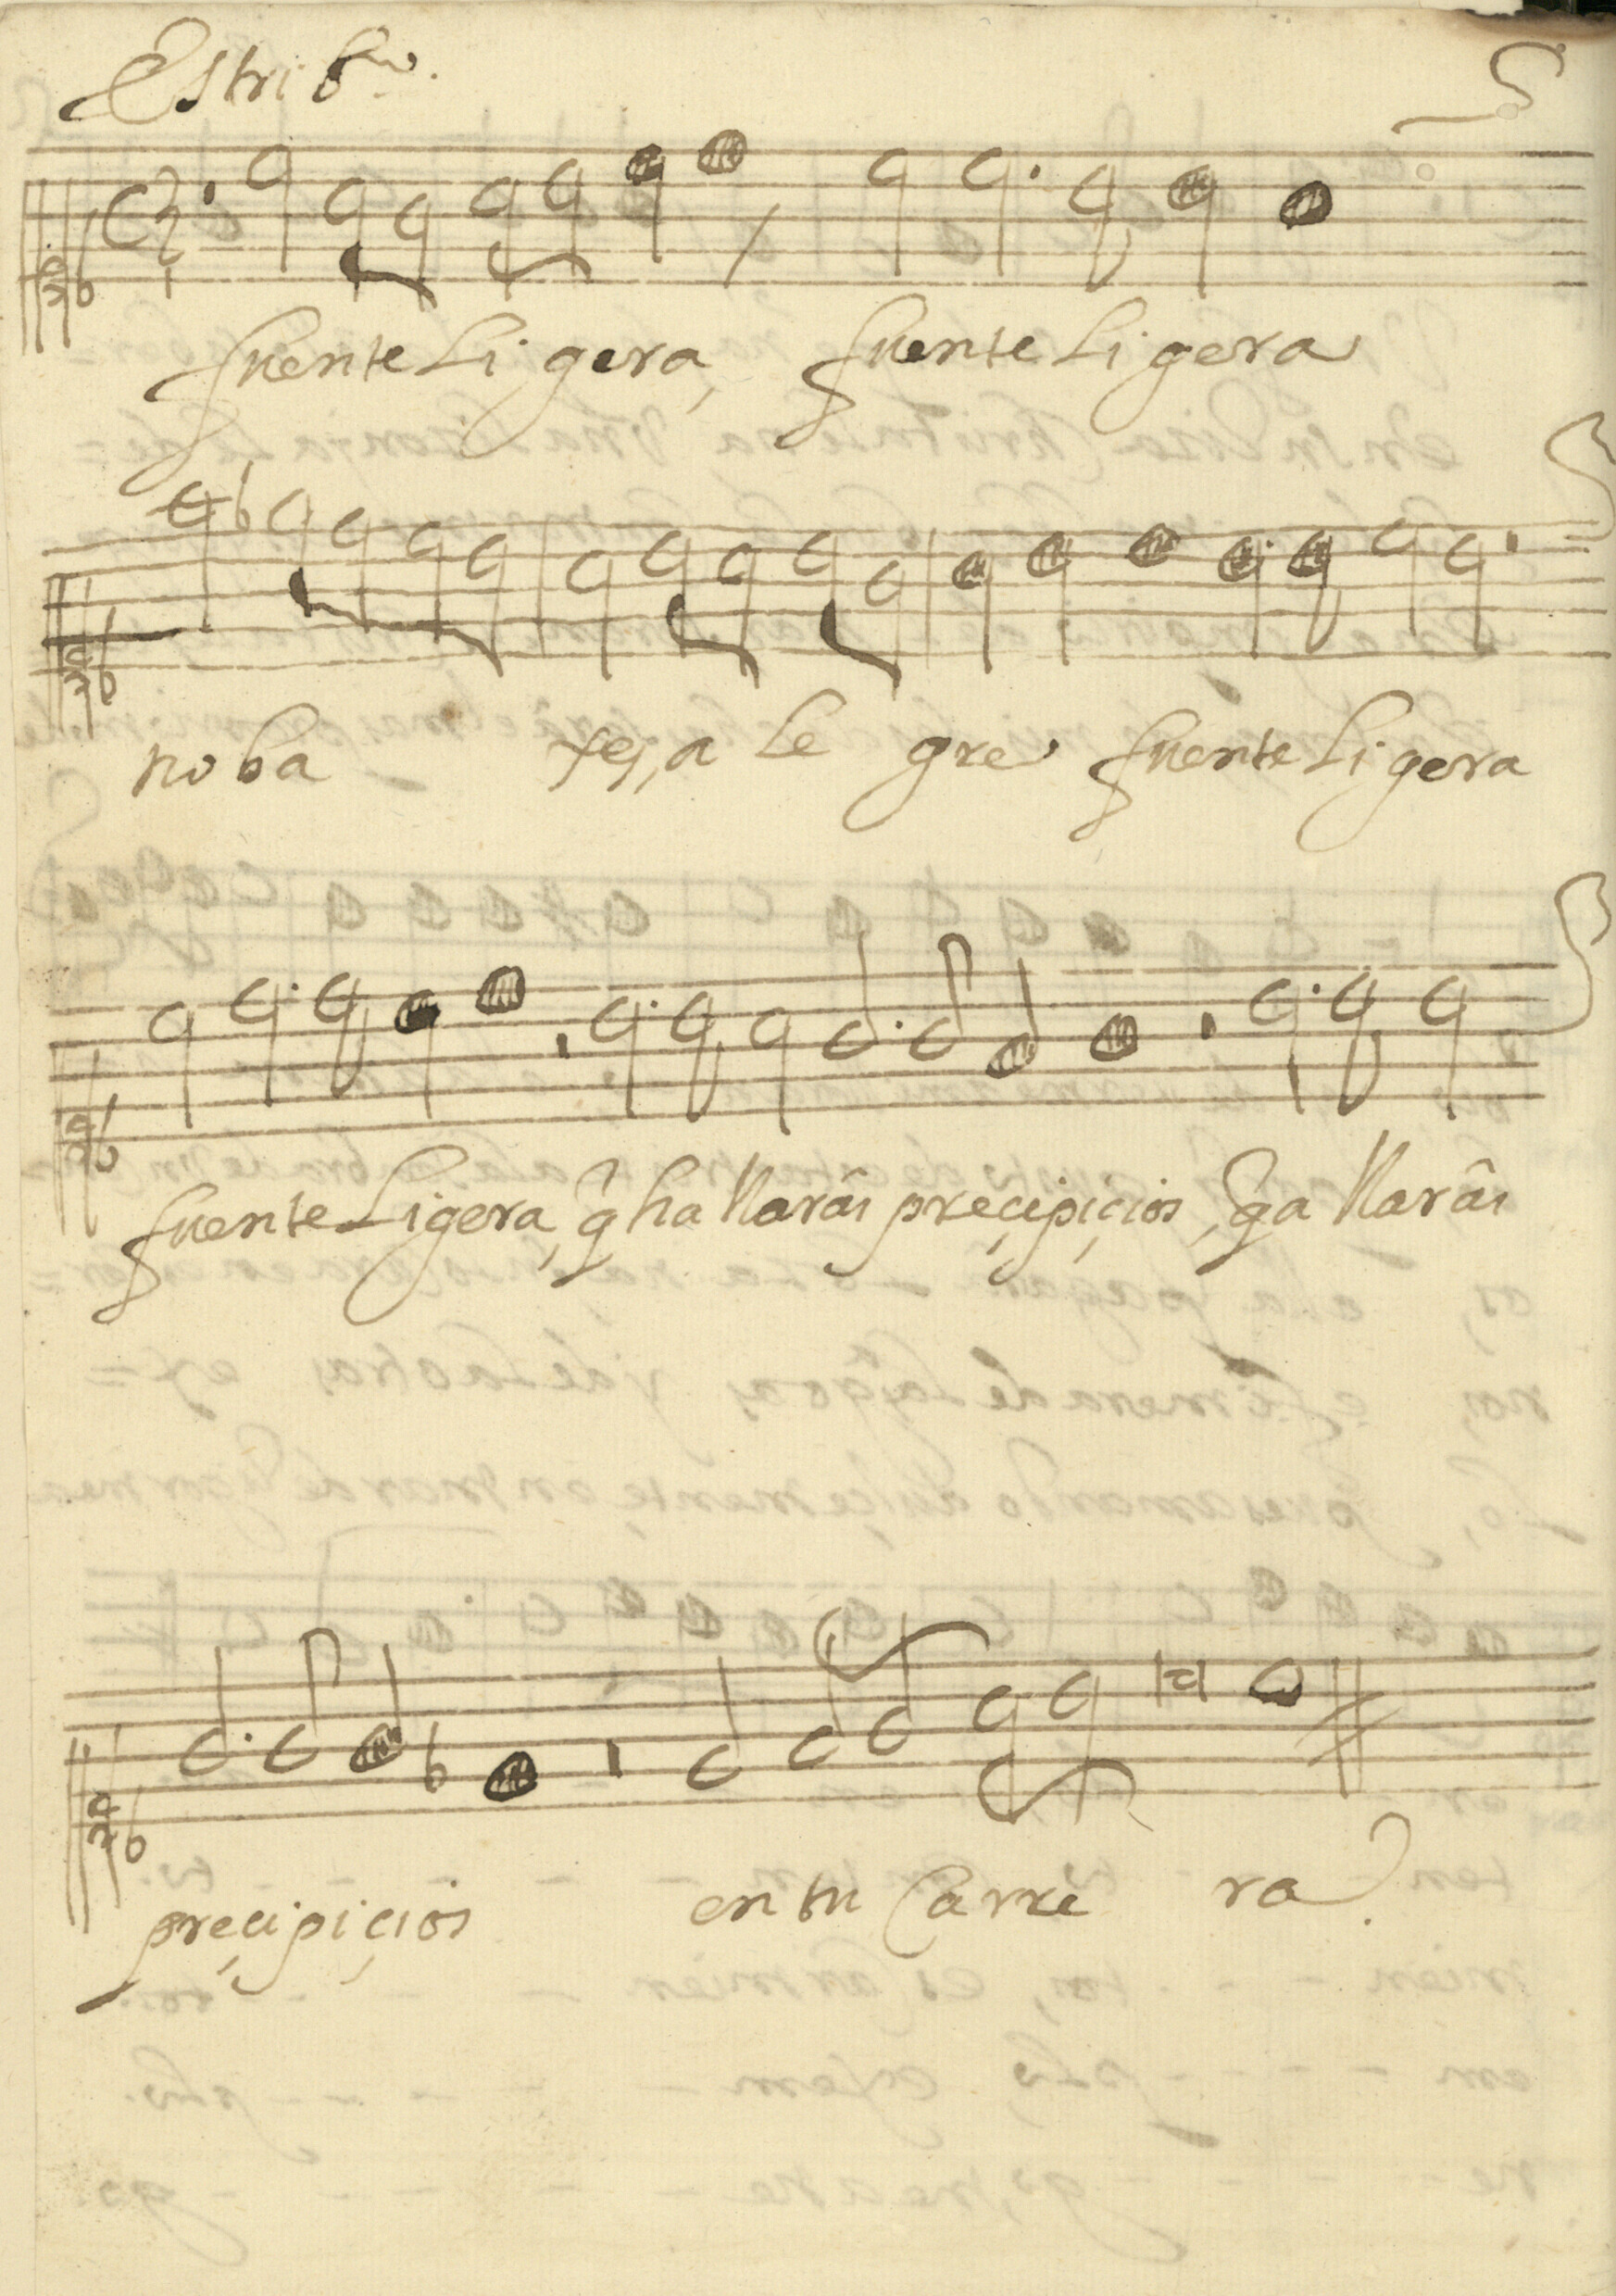 Estribo.
fuente Ligera, fuente Ligera
no ba xes, a Le gre fuente Ligera
fuente Ligera, q̃ ha llarâs preçipiçios, q̃ a llarâs
preçipiçios en tu Carre ra.